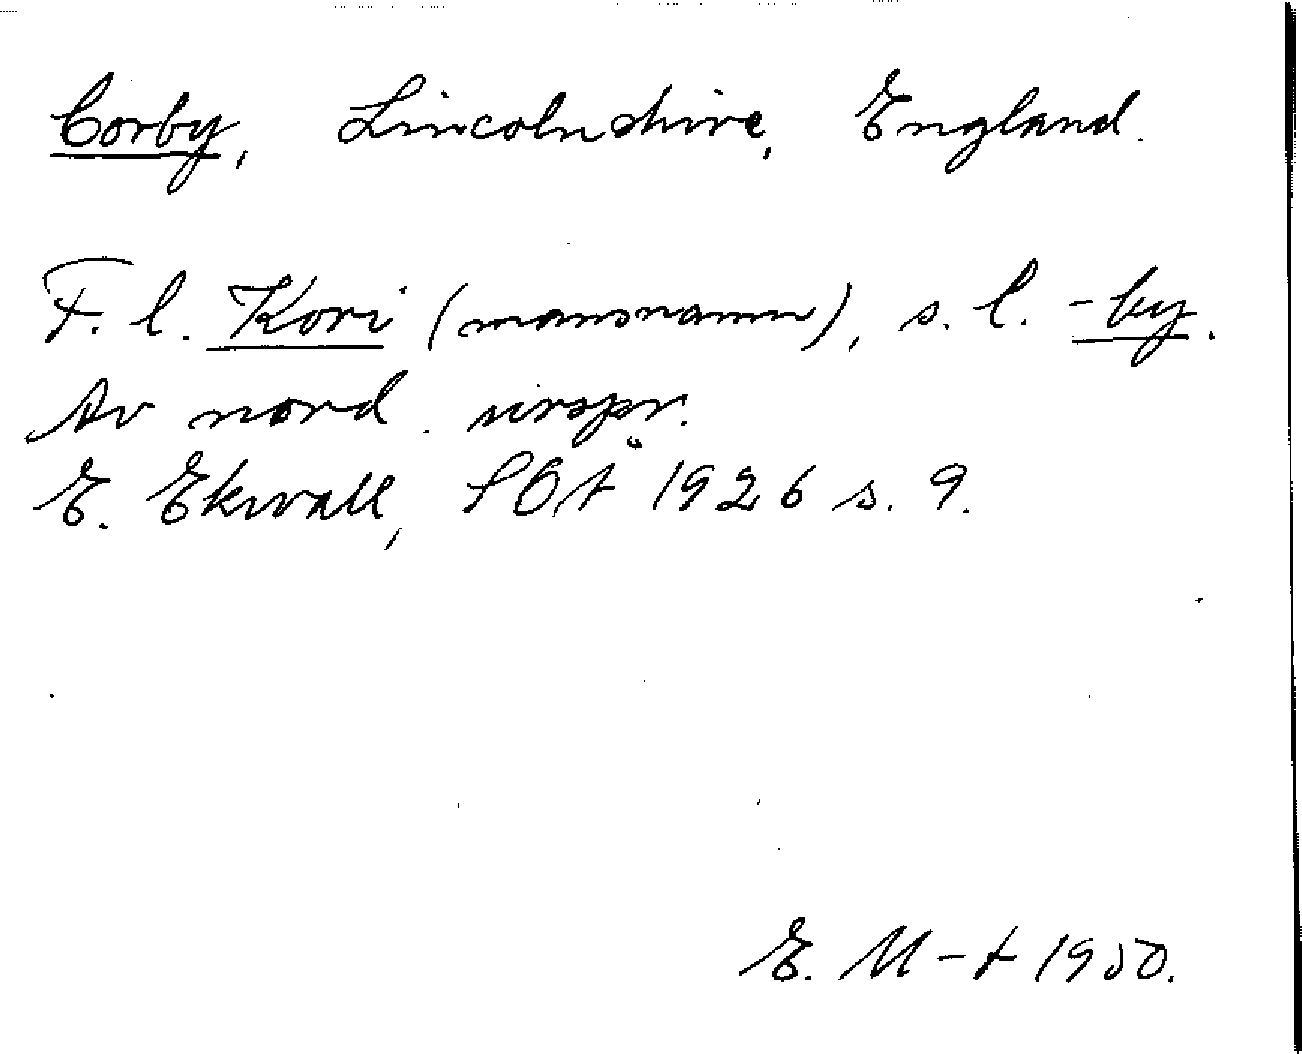 Corby, Lincolnshire, England.
F. l. Kori (mansnamn), s. l. -by.
Av nord. urspr.
E. Ekwall, SOÅ 1926 s. 9.
E. M-t 1950.